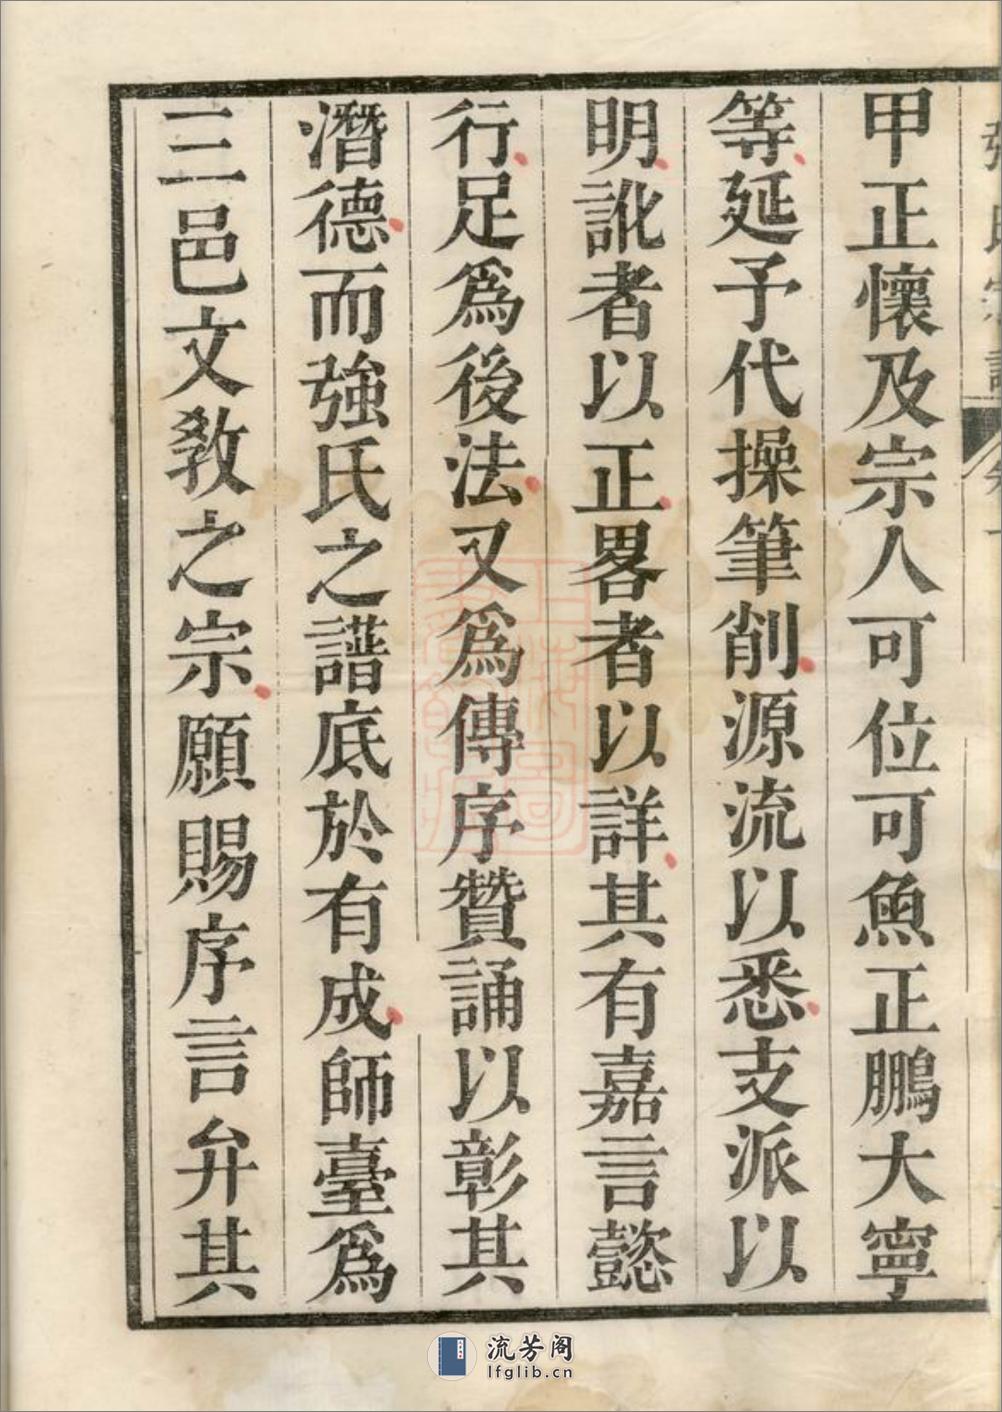 甲正懷及宗人可位可魚正鵬大寧
等延予代操筆削源流以悉支派以
明訛者以正畧者以詳其有嘉言懿
行足爲後法又爲傳序贊誦以彰其
潛德而強氏之譜底於有成師臺爲
三邑文教之宗願賜序言弁其
流芳阁
lfglib.cn